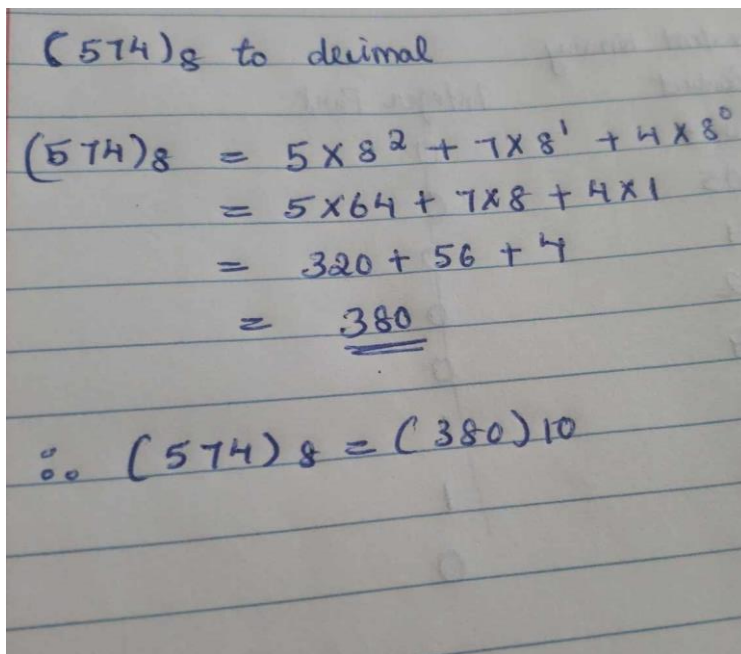 (574)8 to decimal
(574)8 = 5 X 8² + 7 X 8¹ + 4 X 8⁰
= 5 X 64 + 7 X 8 + 4 X 1
= 320 + 56 + 4
= 380
∴ (574)8 = (380)10